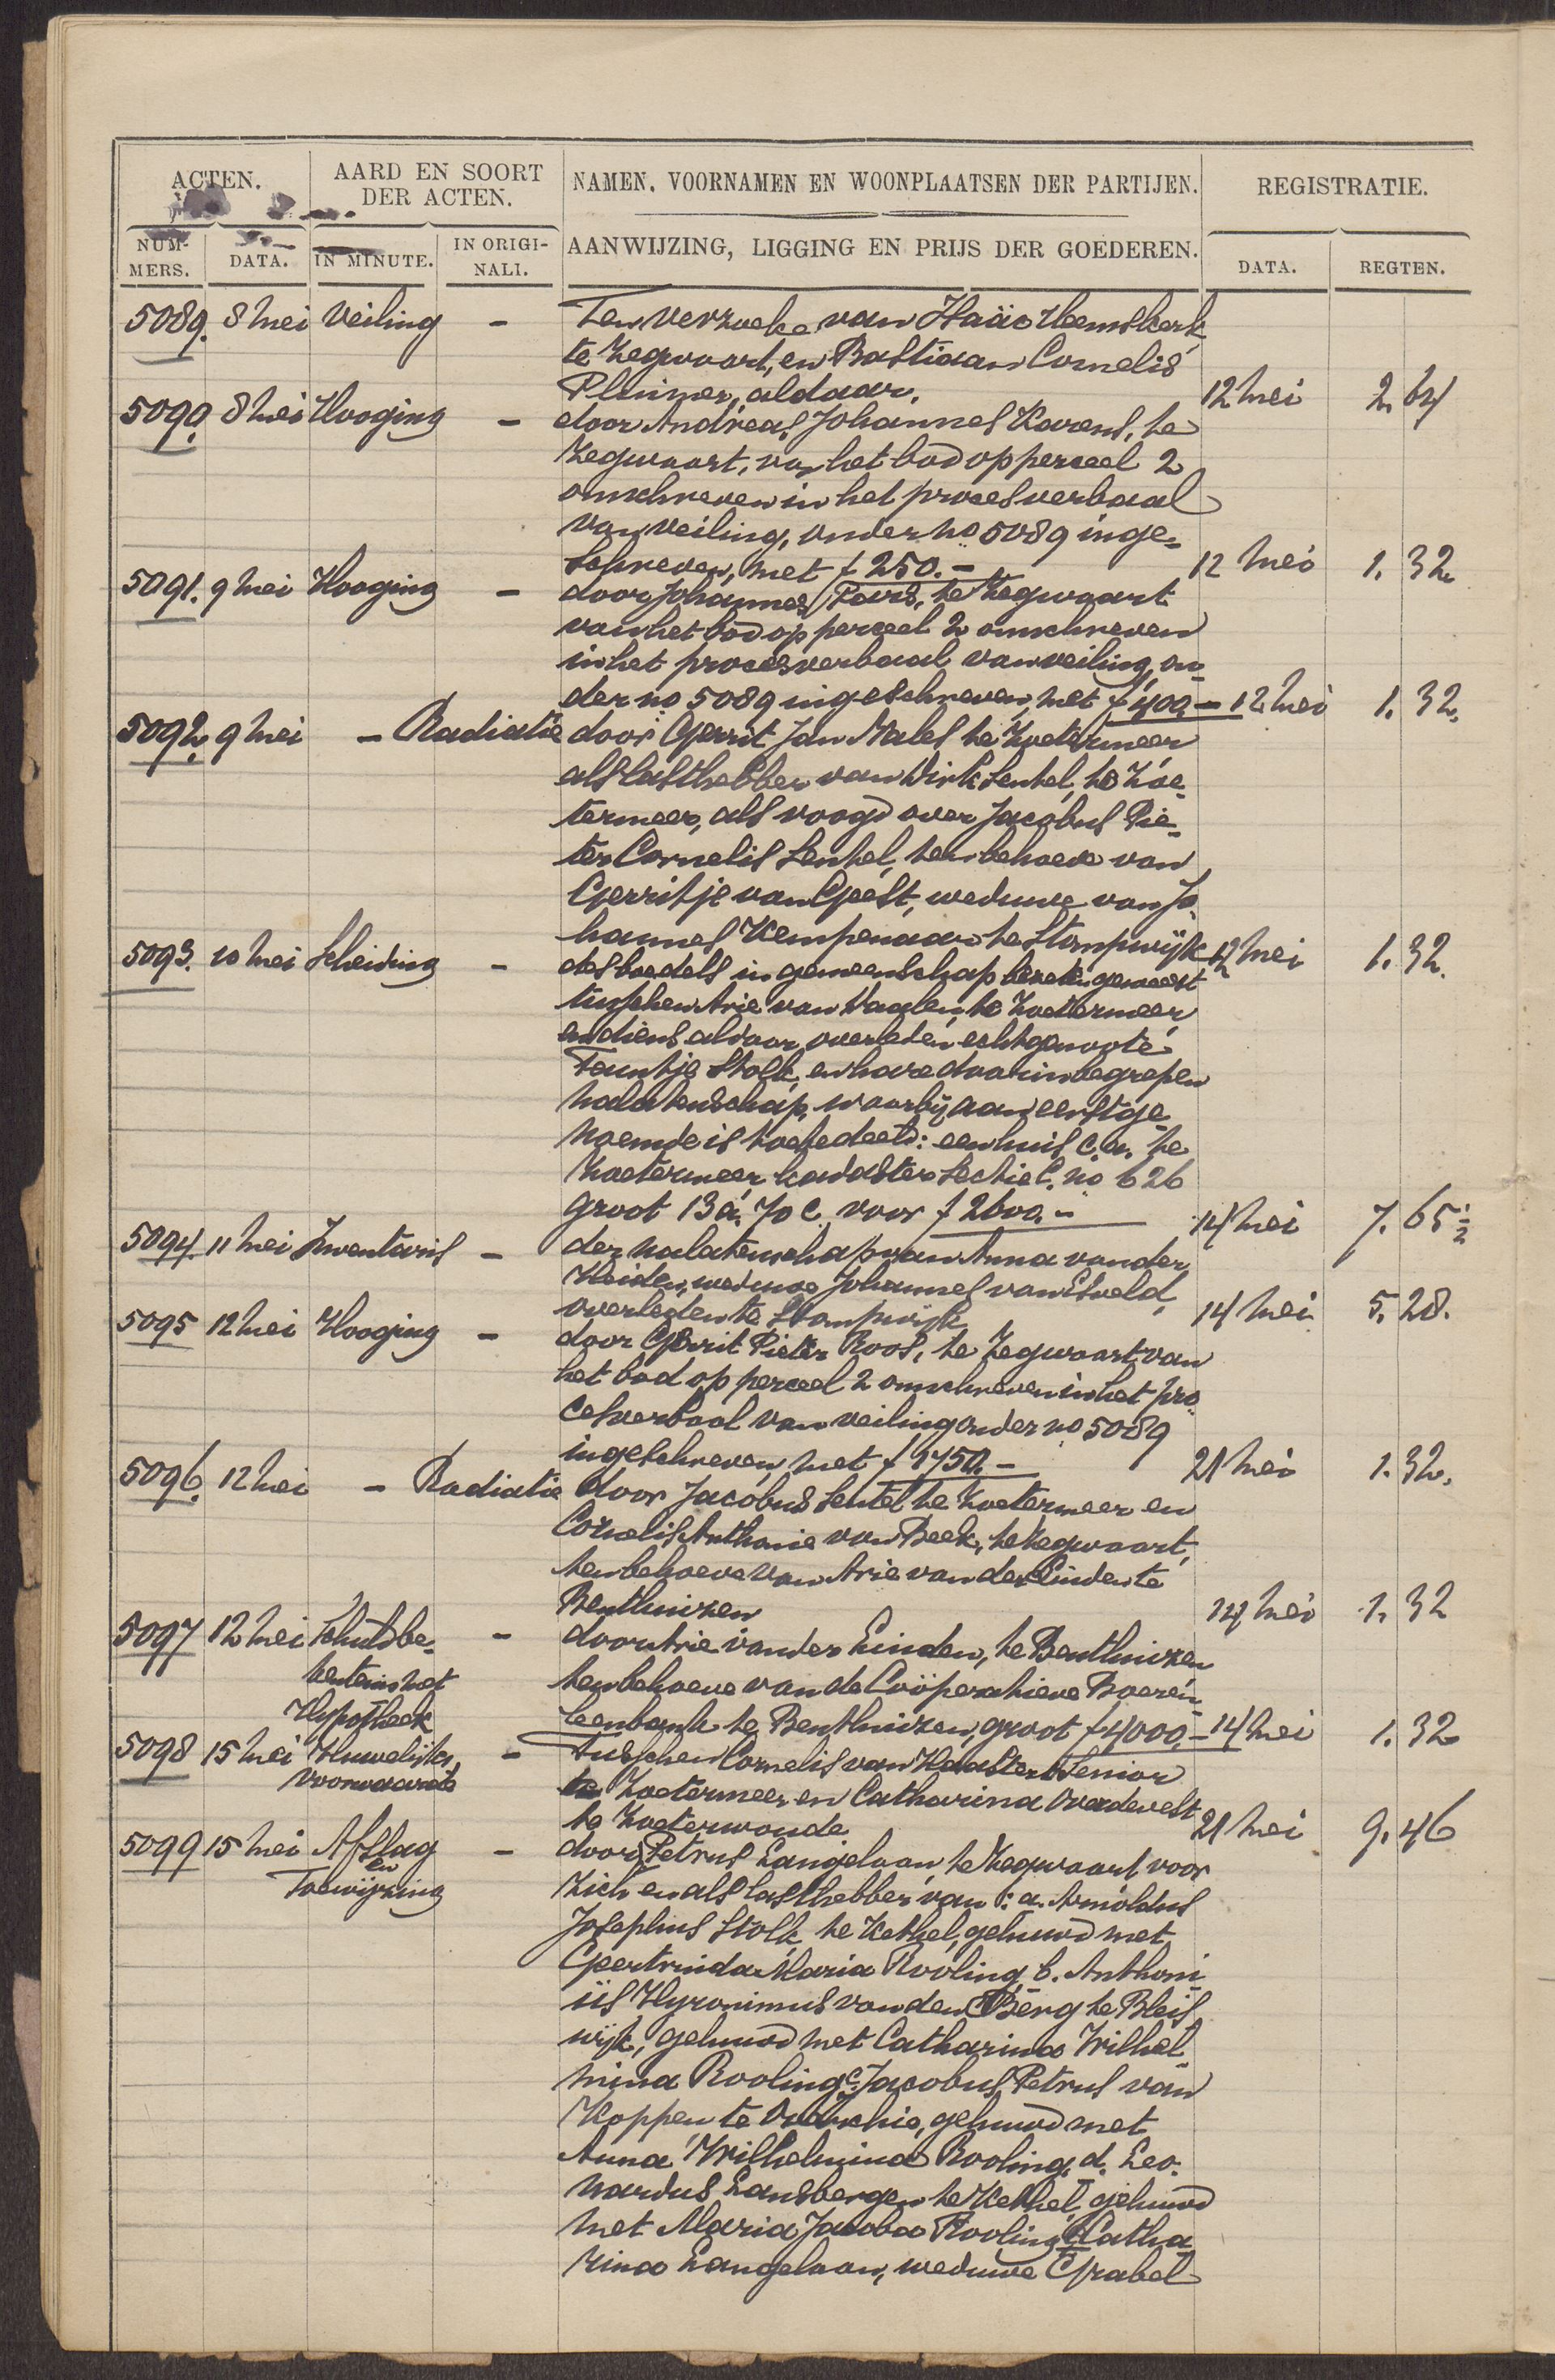 ACTEN.
AARD EN SOORT
DER ACTEN.
NAMEN, VOORNAMEN EN WOONPLAATSEN DER PARTIJEN.
REGISTRATIE.
NUM-
MERS.
DATA.
IN MINUTE.
IN ORIGI-
NALI.
AANWIJZING, LIGGING EN PRIJS DER GOEDEREN.
DATA.
REGTEN.
5089. 8 Mei Veiling - Ten verzoeke van Isaäc Heemskerk
te Zegwaart, en Bastiaan Cornelis
Pluimer, aldaar. 12 Mei 2.64
5090. 8 Mei Hooging - door Andreas Johannes Karens, te
Zegwaart, van het bod op perceel 2
omschreven in het procesverbaal
van veiling, onder no 5089 inge-
schreven, met f 250.- 12 Mei 1.32
5091. 9 Mei Hooging - door Johannes te Zegwaart
van het bod op perceel 2 omschreven
in het procesverbaal van veiling on-
der no 5089 ingeschreven, met f 400.- 12 Mei 1.32.
5092. 9 Mei - Radiatie door Gerrit Jan Males te Zoetermeer
als lasthebber van Dirk Sentel, te Zoe-
termeer, als voogd over Jacobus Pie-
ter Cornelis Sentel, ten behoeve van
Gerritje van Geest, weduwe van Jo-
hannes Kempenaar te Stompwijk 12 Mei 1.32.
5093. 10 Mei Scheiding - des boedels in gemeenschap bezeten geweest
tusschen Arie van Daalen, te Zoetermeer
en diens aldaar overleden echtgenoote
Teuntje Stolk, en hare daarin begrepen
nalatenschap, waarbij aan eerstge-
noemde is toebedeeld: een huis c.a. te
Zoetermeer kadaster Sectie C. no 626
groot 13 a. 70 c. voor f 2600.- 14 Mei 7.65½
5094. 11 Mei Inventaris - der nalatenschap van Anna van der
Heiden, weduwe Johannes van Esveld,
overleden te Stompwijk 14 Mei 5.28.
5095 12 Mei Hooging - door Gerrit Pieter Roos, te Zegwaart van
het bod op perceel 2 omschreven in het pro-
cesverbaal van veiling onder no 5089
ingeschreven met f 1750.- 21 Mei 1.32.
5096. 12 Mei - Radiatie door Jacobus Sentel te Zoetermeer en
Cornelis Anthonie van Beek, te Zegwaart,
ten behoeve van Arie van der Linden te
Benthuizen 14 Mei 1.32
5097 12 Mei Schuldbe- - door Arie van der Linden, te Benthuizen
kentenis met ten behoeve van de Coöperatieve Boeren-
Hypotheek leenbank te Benthuizen, groot f 4000.- 14 Mei 1.32
5098 15 Mei Huwelijks - Tusschen Cornelis van Haaster Senior
voorwaarde te Zoetermeer en Catharina Overdevest
te Zoeterwoude 21 Mei 9.46
5099 15 Mei Afslag - door Petrus Langelaan, te Zegwaart voor
en
Toewijzing zich en als lasthebber van: a. Arnoldus
Josephus Stolk te Kethel, gehuwd met
Geertruida Maria Rooling, b. Anthoni-
us Hyronimus van den Berg te Bleis-
wijk, gehuwd met Catharina Wilhel-
mina Rooling c. Jacobus Petrus van
Koppen te Overschie, gehuwd met
Anna Wilhelmina Rooling, d. Leo-
nardus Lansbergen te Kethel, gehuwd
met Maria Jacoba Rooling e. Catha-
rina Langelaan, weduwe Ijsabel